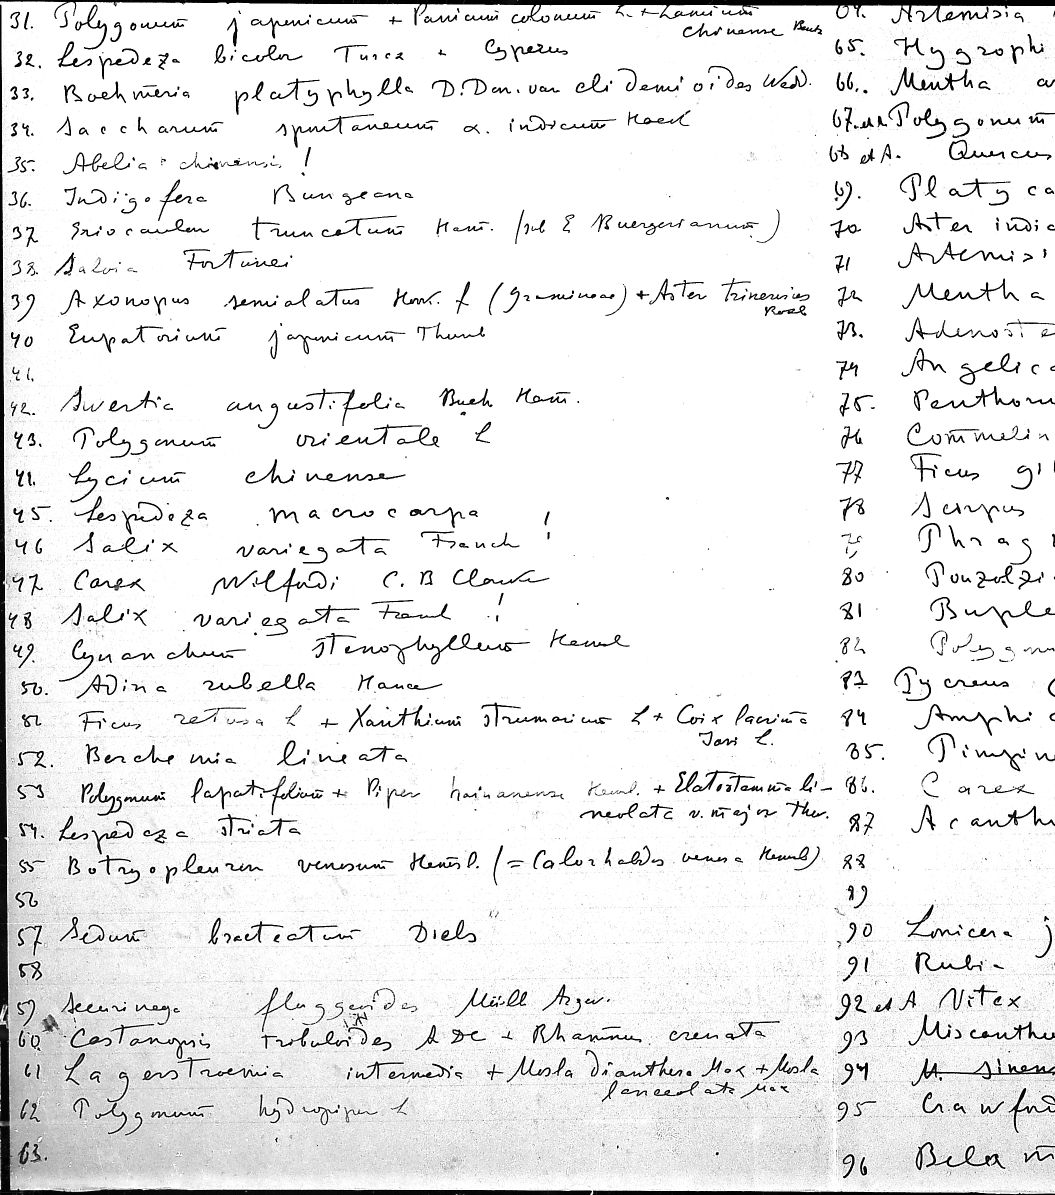 31. Polygonum japonicum + Panicum colonum L. + Lamium
chinense Benth
32. Lespedeza bicolor Turcz + Cyperus
33. Boehmeria platyphylla D. Don. var clidemioides Wedd.
34. Saccharum spontaneum α. indicum Hack
35. Abelia chinensis !
36. Indigofera Bungeana
37 Eriocaulon truncatum Ham. (sub E Buergerianum)
38. Salvia Fortunei
39 Axonopus semialatus Hook. f (Gramineae) + Aster trinervius
Roxb
40 Eupatorium japonicum Thunb
41.
42. Swertia angustifolia Buch Ham.
43. Polygonum orientale L
44. Lycium chinense
45. Lespedeza macrocarpa
46 Salix variegata Franch !
47 Carex Wilfordi C. B Clarke
48 Salix variegata Franch !
49. Cynanchum stenophyllum Hemsl
50. Adina rubella Hance
51 Ficus retusa L + Xanthium strumarium L + Coix lacrima
Jovi L.
52. Berchemia lineata
53 Polygonum lapatifolium + Piper hainanense Hemsl. + Elatostemma li-
neolata v. major Thw.
54. Lespedeza striata
55 Botryopleuron venosum Hemsl. (= Calorhabdos venosa Hemsl)
56
57 Sedum bracteatum Diels
58
59 Securinega fluggeoides Müll Argov.
60. Castanopsis tribuloides A DC + Rhamnus crenata
61 Lagerstroemia intermedia + Mosla dianthera Max + Mosla
lanceolata Max
62 Polygonum hydropiper L
63.
64. Artemisia
65. Hygrophi
66. Mentha ar
67. et A Polygonum
68 et A. Quercus
69. Platyca
70 Aster indic
71 Artemisi
72 Mentha
73. Adenoste
74 Angelica
75. Penthoru
76 Commelin
77 Ficus gi
78 Scirpus
79 Phrag
80 Pouzolzi
81 Buple
82 Polygonu
83 Pycreus
84 Amphi
85. Pimpin
86. Carex
87 Acanth
88
89
90 Lonicera j
91 Rubia
92 et A Vitex
93 Miscanthu
94 M. sinens
95 Crawfurd
96 Belam